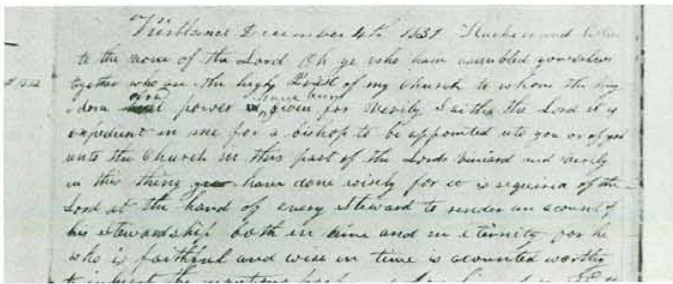 Kirtland December 4th 1831 Hearken and listen
to the voice of the Lord Oh ye who have assembled yourselves
together who are the high Priest of my Church to whom the king
dom and power have been given for verily saith the Lord it is
expedient in me for a bishop to be appointed unto you or of you
unto the Church in this part of the Lords viniard and verily
in this thing ye have done wisely for it is required of the
Lord at the hand of every Steward to render an acount of
his Stewardship both in time and in eternity for he
who is faithful and wise in time is acounted worthy
to inherit the